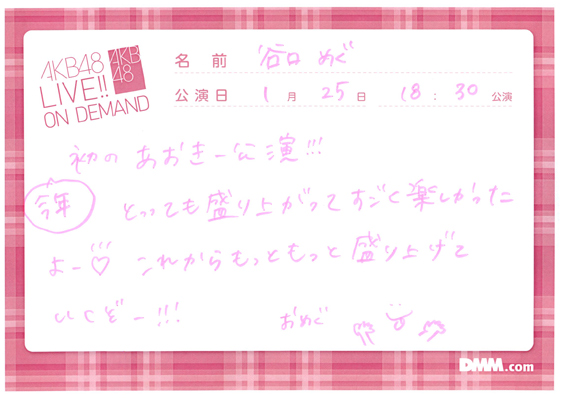 AKB48
LIVE!!
ON DEMAND
AKB
48
名前 谷口 めぐ
公演日 1月25日 18:30公演
初の あおきー公演!!!
今年
とっっても盛り上がってすごく楽しかった
よー♡ これからもっともっと盛り上げて
いくぞー!!!
おめぐ
DMM.com